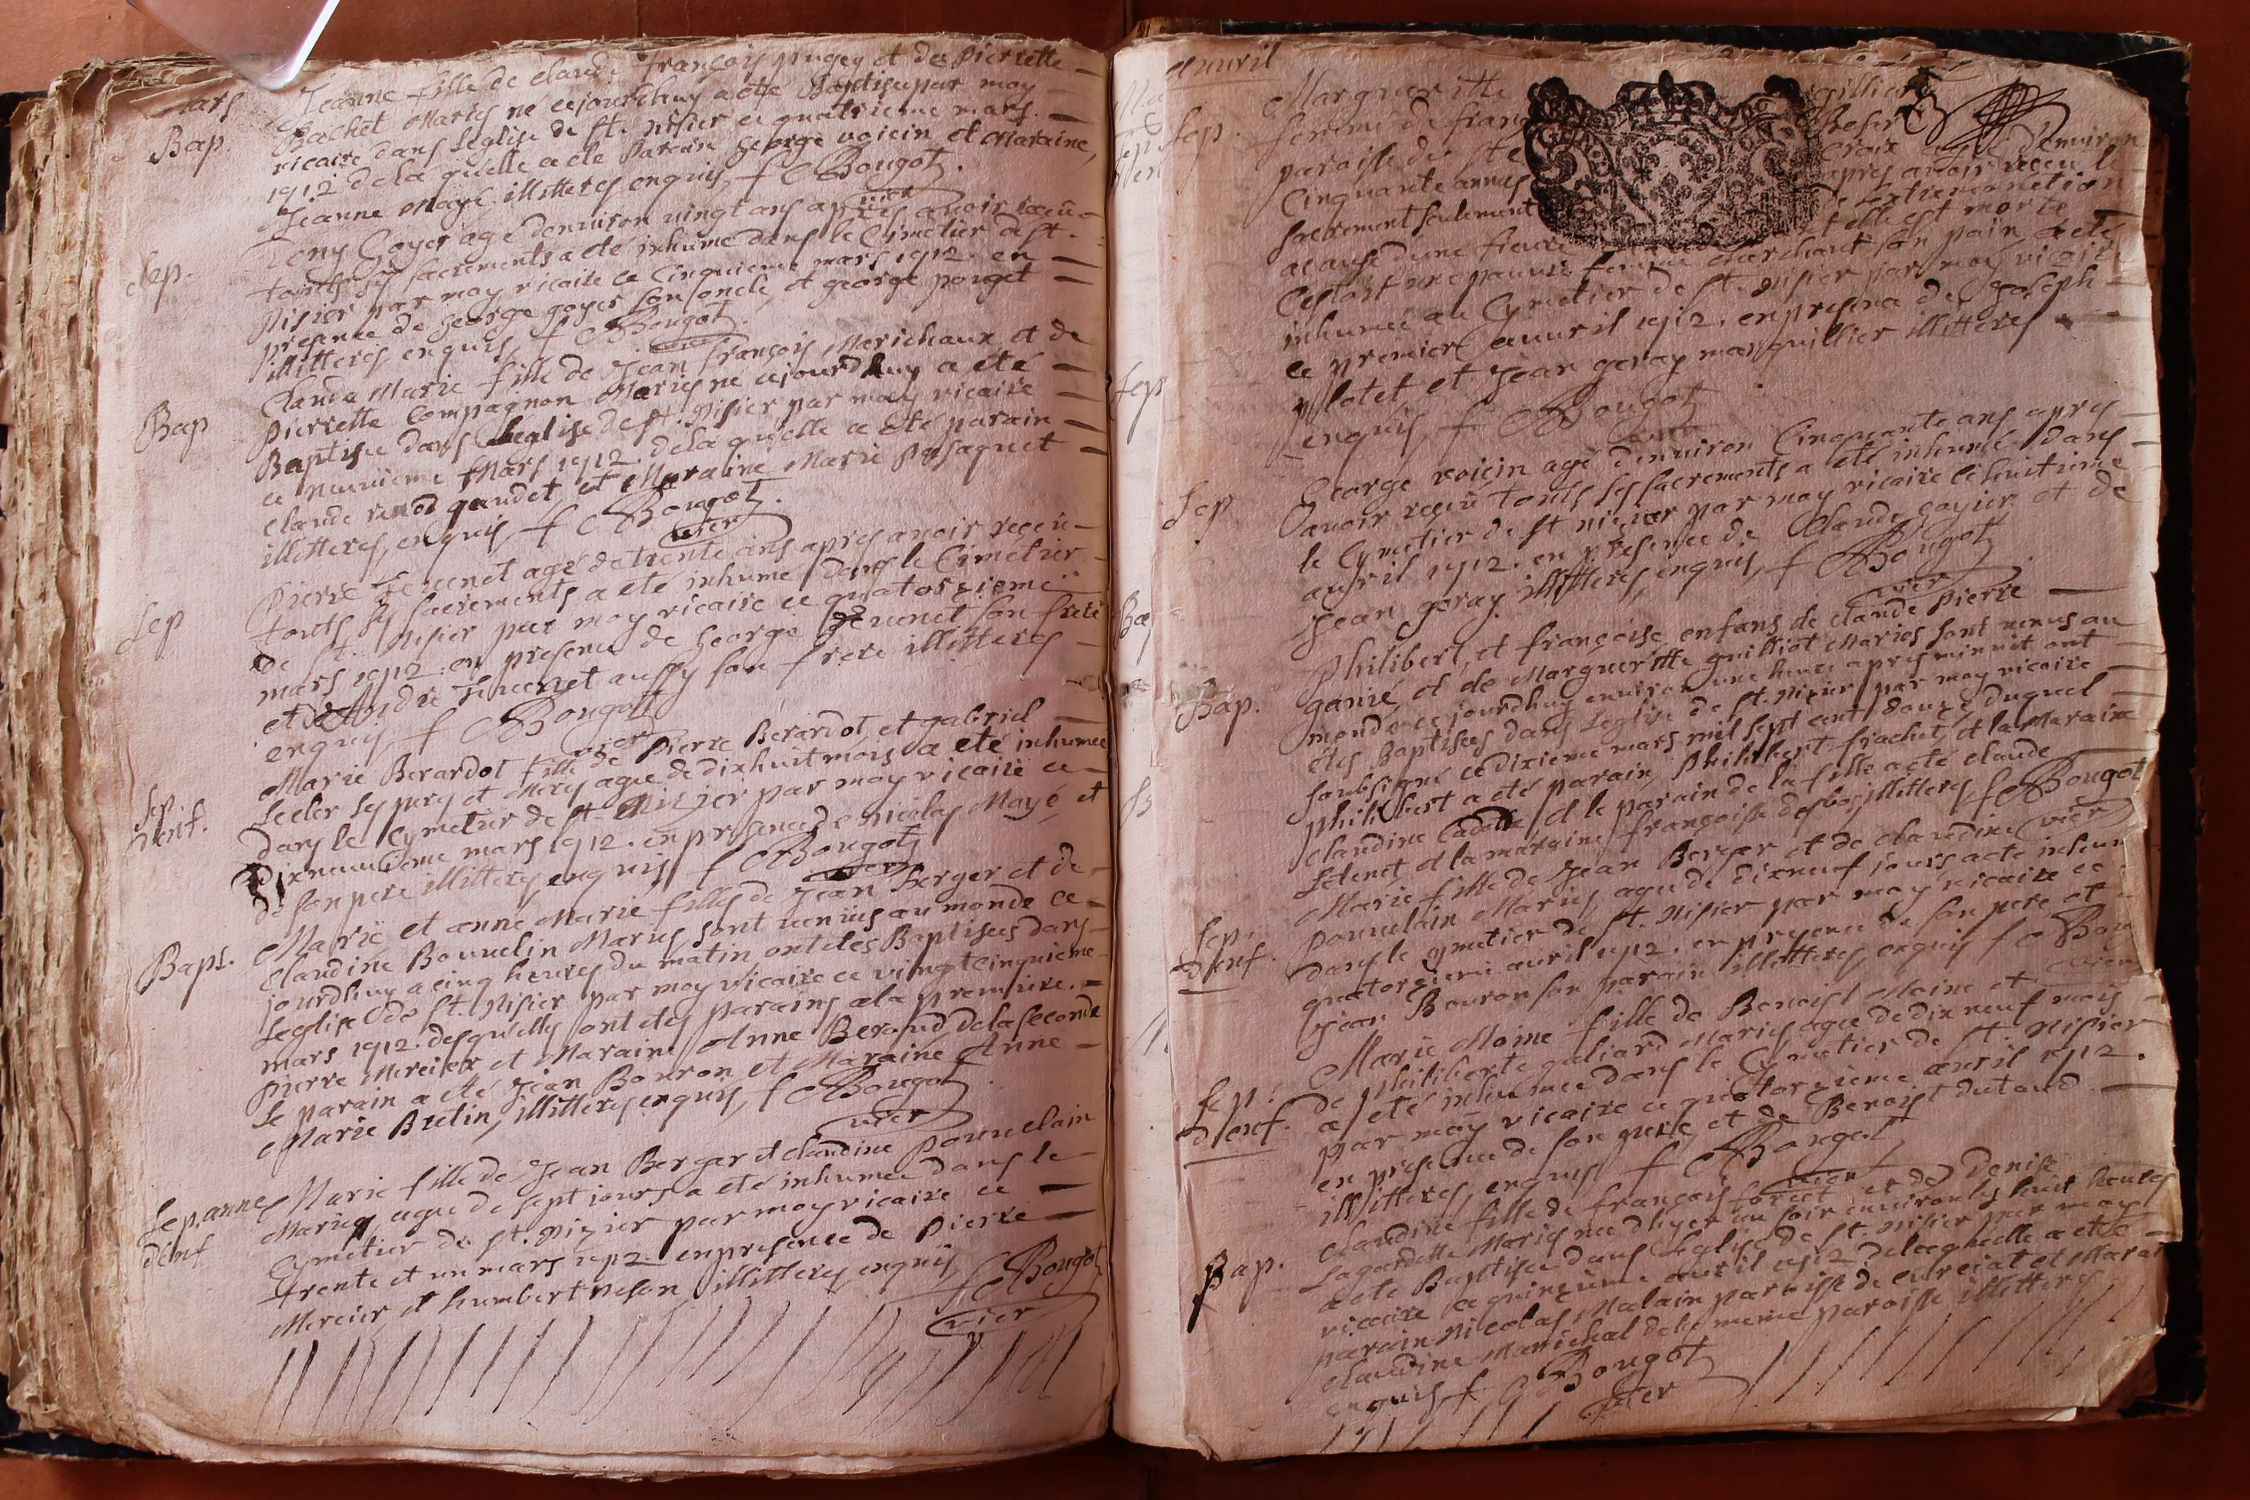 mars
Bap. Jeanne fille de claude françois pugey et de pierrette
Bachet Mariés né cejourdhuy a eté Baptisée par moy
vicaire dans Leglise de st. nisier ce quatrieme mars
1712 de la quelle a eté Parain George voisin et Maraine
Jeanne Mayé illitterés enquis, f Bougot
vier
Sep. Tony Goyer agé denviron vingt ans apres avoir receu
touts ses sacrements a eté inhumé dans le Cimetier de st.
nisier par moy vicaire ce Cinquieme mars 1712. en
presence de george goyer son oncle, et george pouget
illitterés enquis, f Bougot
vier
Bap Claude Marie fille de Jean françois Marichaux et de
pierrette Compagnon Mariés né cejourdhuy a eté
Baptisée dans Leglise de st. nisier par moy vicaire
ce neuvieme Mars 1712. de la quelle a eté parain
claude gaudet, et Maraine Marie pasaquet
illitterés, enquis, f Bougot
vier
Sep pierre agé de trente ans apres avoir receu
touts ses sacrements a eté inhumé dans le Cimetier
de st. nisier par moy vicaire ce quatorzieme
mars 1712. en presence de george son frere
et André aussy son frere illitterés
enquis, f Bougot
vier
Sep d'enf. Marie Berardot fille de pierre Berardot, et gabriel
Lecler ses pere et Mere agée de dixhuit mois a eté inhumée
dans le Cymetier de st. nizier par moy vicaire ce
Dixneuvieme mars 1712. en presence de nicolas Mayé, et
de son pere illitterés enquis f Bougot
vier
Bapt. Marie et anne Marie filles de Jean Berger et de
claudine Bonnelin Mariés, sont venues au monde ce
jourdhuy a cinq heures du matin ont etés Baptisées dans
Leglise de st. nisier par moy vicaire ce vingtcinquieme
mars 1712. desquelles ont etés parains a la premiere
pierre Mercier, et Maraine Anne Beraud, de la seconde
Le parain a eté Jean Bouron et Maraine Anne
Marie Brelin, illitterés enquis, f Bougot
vier
Sep. d'enf anne Marie fille de Jean Berger et claudine ponnelain
Mariés, agée de sept jours a eté inhumée dans le
Cymetier de st. nizier par moy vicaire ce
trente et un mars 1712. en presence de pierre
Mercier, et humbert neson illitterés enquis
f Bougot
vier
avvril
Sep. Margueritte
femme de
paroisse de ste croix agée d'environ
Cinquante années apres avoir receu le
sacrement seulement de Lextremonction
a cause d'une fievre et elle est morte
Cestoit une pauvre femme cherchant son pain a eté
inhumée au Cymetier de st. nisier par moy vicaire
ce premier avvril 1712. en presence de Joseph
plotet et Jean geray marguillier illitterés
enquis, f Bougot
vier
Sep George voisin agé d'environ Cinquante ans apres
avoir receu touts ses sacrements a eté inhumé dans
le Cymetier de st nizier par moy vicaire le huitieme
avril 1712. en presence de claude goyier et de
Jean geray illitterés, enquis, f Bougot
vier
Bap. philibert, et françoise enfans de claude pierre
ganié, et de Margueritte guilliot Mariés sont venus au
monde ce jourdhuy environ une heure apres minuit ont
étés Baptisés dans Leglise de st. nizier par moy vicaire
soubsigné ce dixieme mars mil sept cent douze duquel
philibert a eté parain, philibert frachet, et la Maraine
claudine et le parain de la fille a eté claude
et la maraine françoise desbois illitterés, f Bougot
vier
Sep. d'enf. Marie fille de Jean Berger et de claudine
ponnelain Mariés, agée de dixneuf jours a eté inhum
dans le cymetier de st. nisier par moy vicaire ce
quatorzieme avril 1712. en presence de son pere et
Jean Bouron son parain illitterés, enquis f Bou
vier
Sep. d'enf. Marie Moine fille de Benoist Moine et
de philiberte galiard Mariés agée de dixneuf mois
a eté inhumée dans le Cymetier de st. nisier
par moy vicaire ce quatorzieme avril 1712.
en presence de son pere, et de Benoist dutaud
illitterés, enquis f Bougot
vier
Bap. claudine fille de françois foret et de Denise
Lagardette Mariés née dhyer au soir environ les huit heures
a eté Baptisée dans Leglise de st. nisier par moy
vicaire ce quinzieme avril 1712. de laquelle a eté
parain nicolas Malain paroisse de curciat et Marai
claudine Marichal de la meme paroisse illitterés
enquis, f Bougot
vier